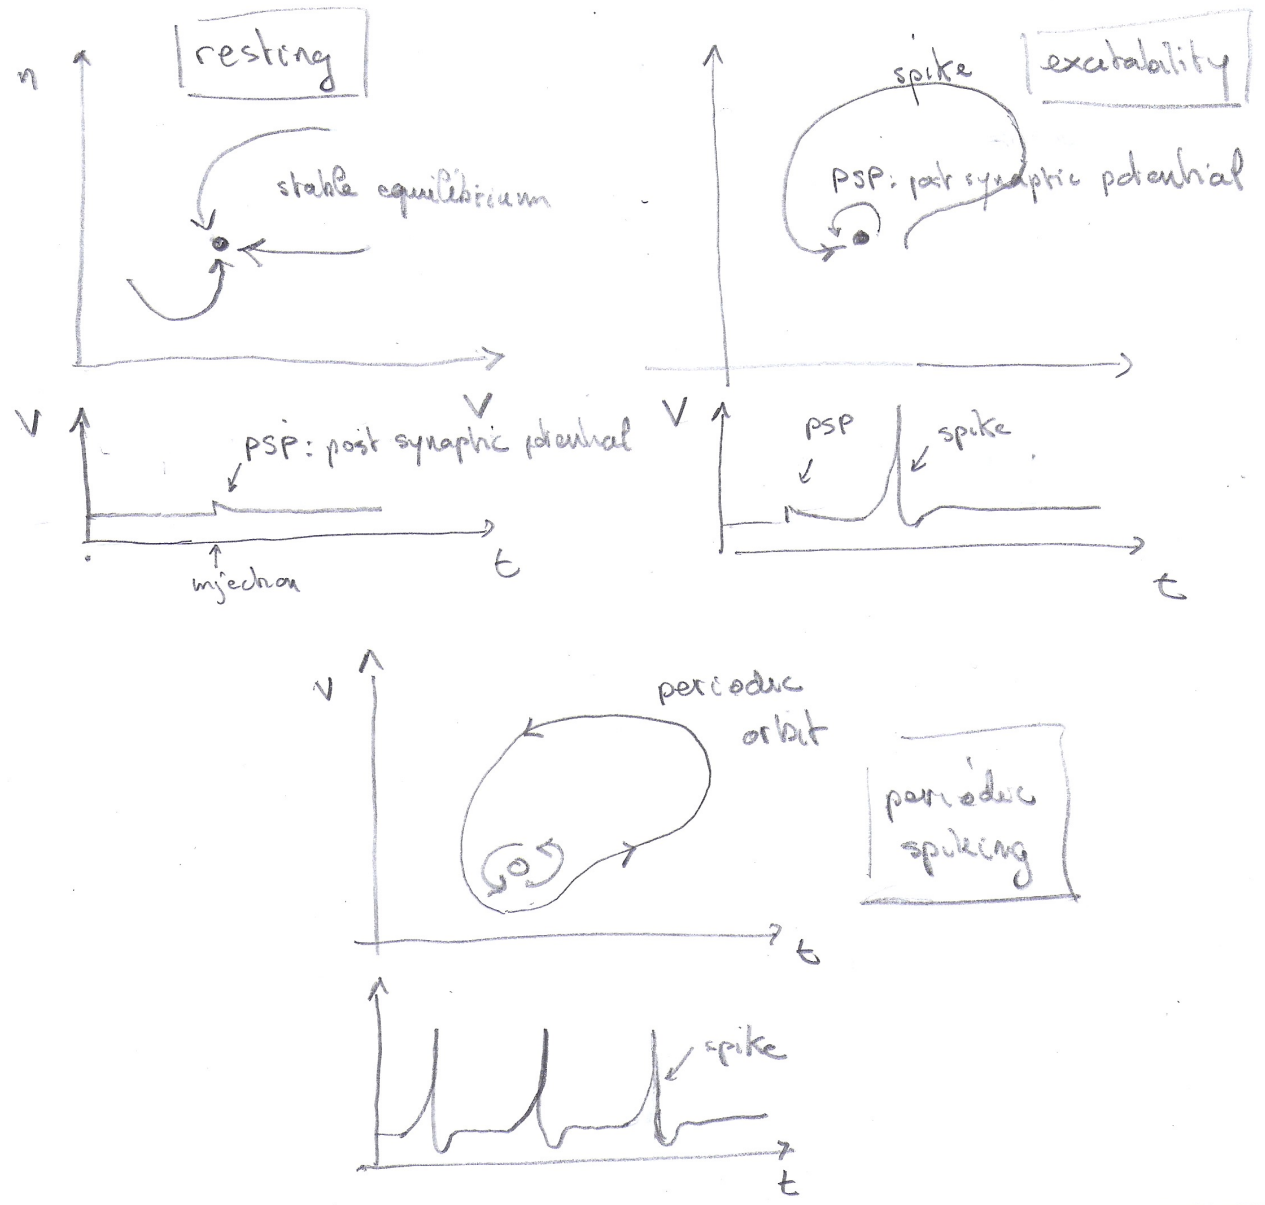 resting
n
stable equilibrium
V
V
PSP: post synaptic potential
injection
t
excitability
spike
PSP: post synaptic potential
V
PSP
spike
t
V
periodic
orbit
periodic
spiking
t
spike
t